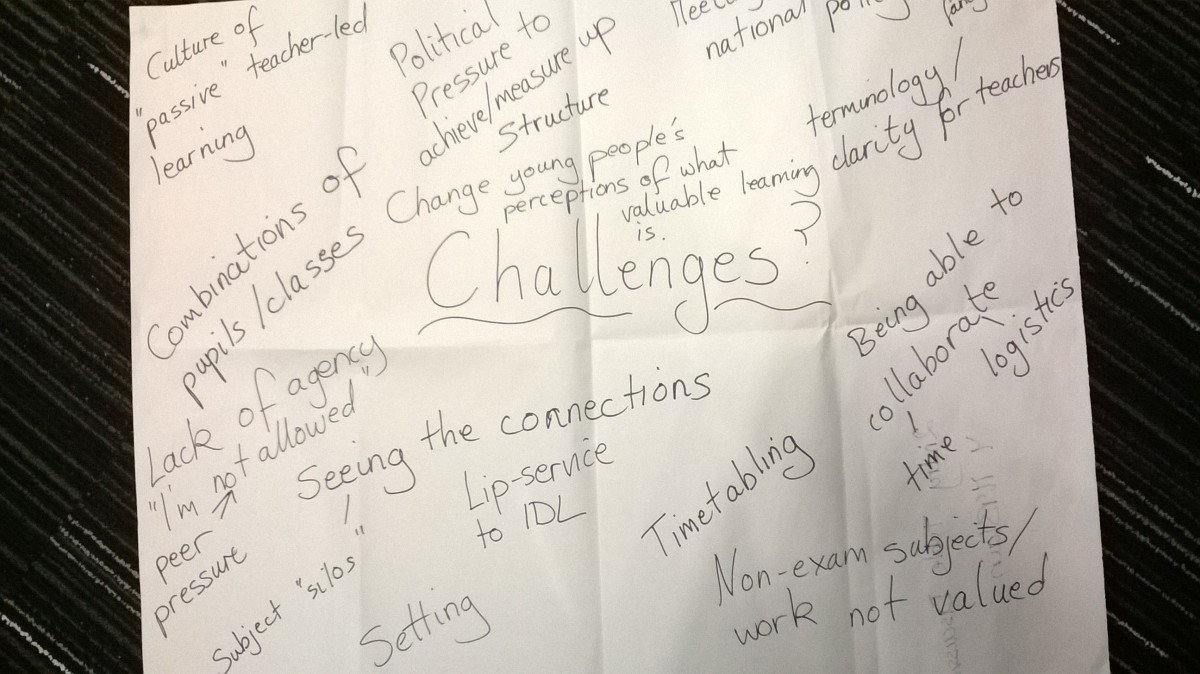 Culture of
"passive" teacher-led
learning
Political
Pressure to
achieve/measure up
Structure
national
terminology/
clarity for teachers
Change young people's
perceptions of what
valuable learning
is.
Challenges?
Combinations of
pupils/classes
Lack of agency
"I'm not allowed"
peer
pressure
Seeing the connections
Subject "silos"
Lip-service
to IDL
Setting
Timetabling
Being able to
collaborate
logistics
time
Non-exam subjects/
work not valued